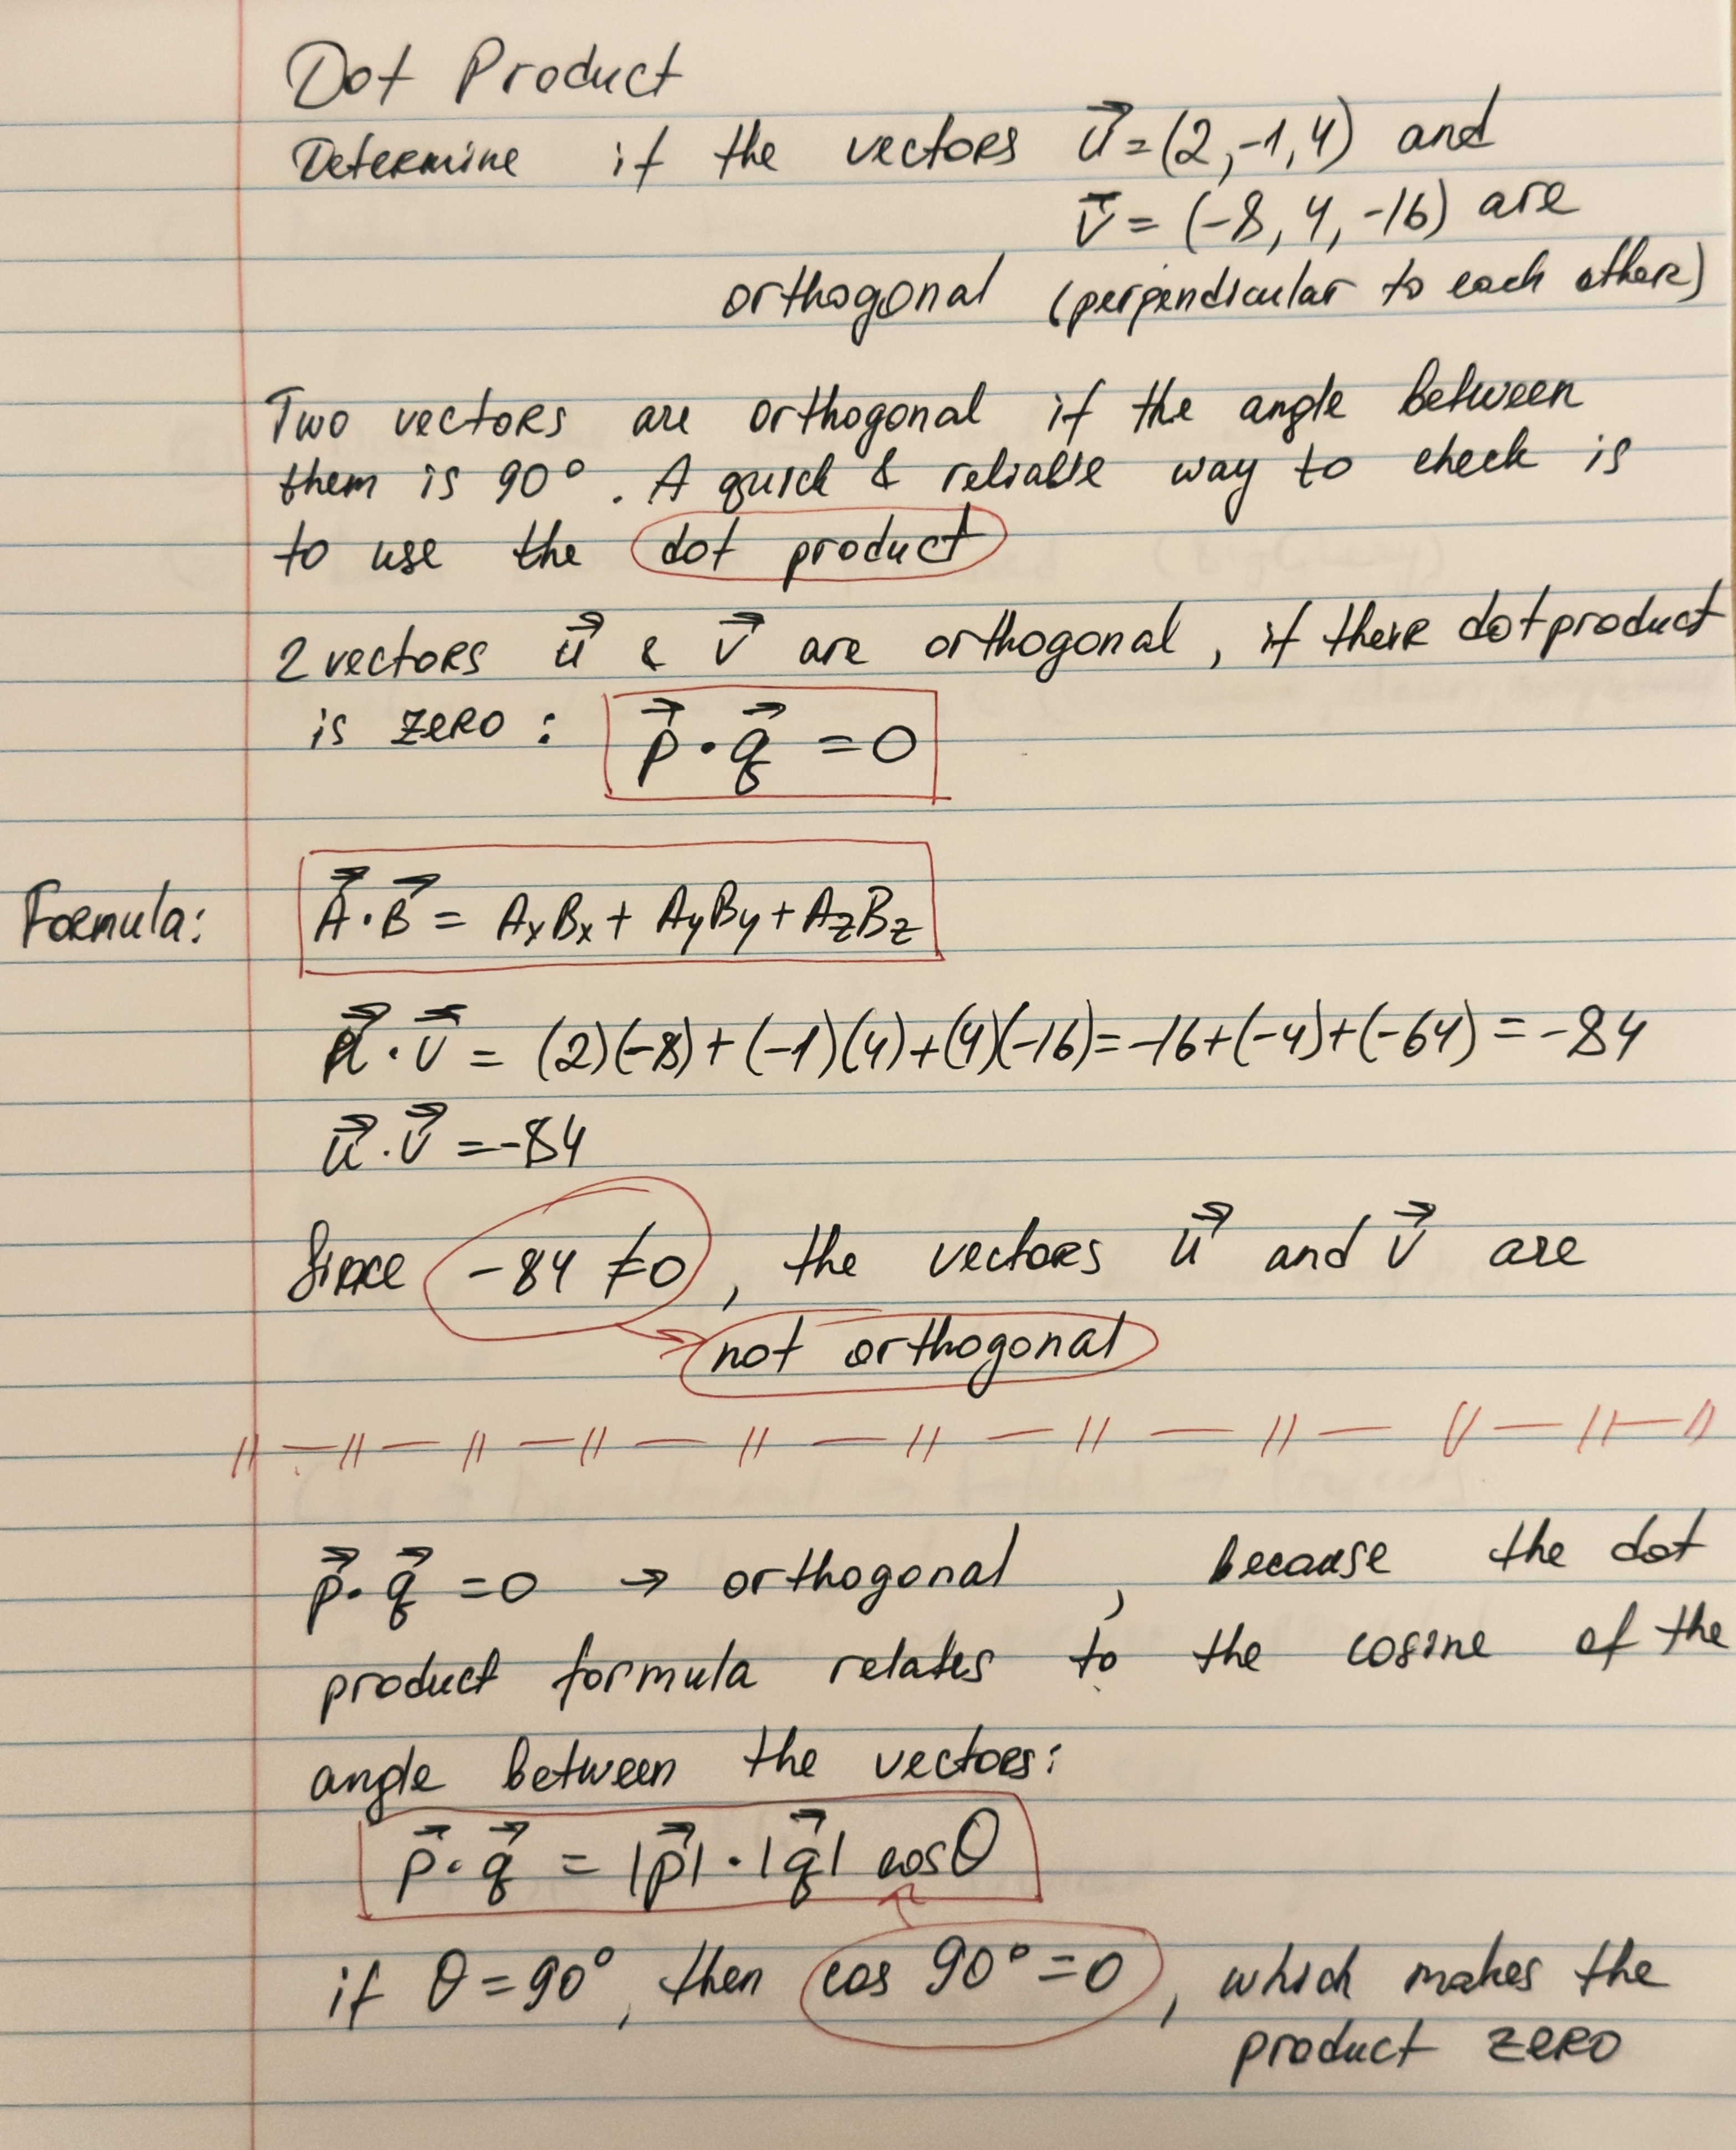 Dot Product
Determine if the vectors u⃗=(2,-1,4) and
v⃗ = (-8, 4, -16) are
orthogonal (perpendicular to each other)
Two vectors are orthogonal if the angle between
them is 90°. A quick & reliable way to check is
to use the dot product
2 vectors u⃗ & v⃗ are orthogonal, if their dotproduct
is zero: p⃗ · q⃗ = 0
Formula: A⃗ · B⃗ = AxBx + AyBy + AzBz
u⃗ · v⃗ = (2)(-8) + (-1)(4) + (4)(-16) = -16 + (-4) + (-64) = -84
u⃗ · v⃗ = -84
Since -84 ≠ 0, the vectors u⃗ and v⃗ are
not orthogonal
p⃗ · q⃗ = 0 → orthogonal, because the dot
product formula relates to the cosine of the
angle between the vectors:
p⃗ · q⃗ = |p⃗| · |q⃗| cos θ
if θ = 90°, then cos 90° = 0, which makes the
product zero